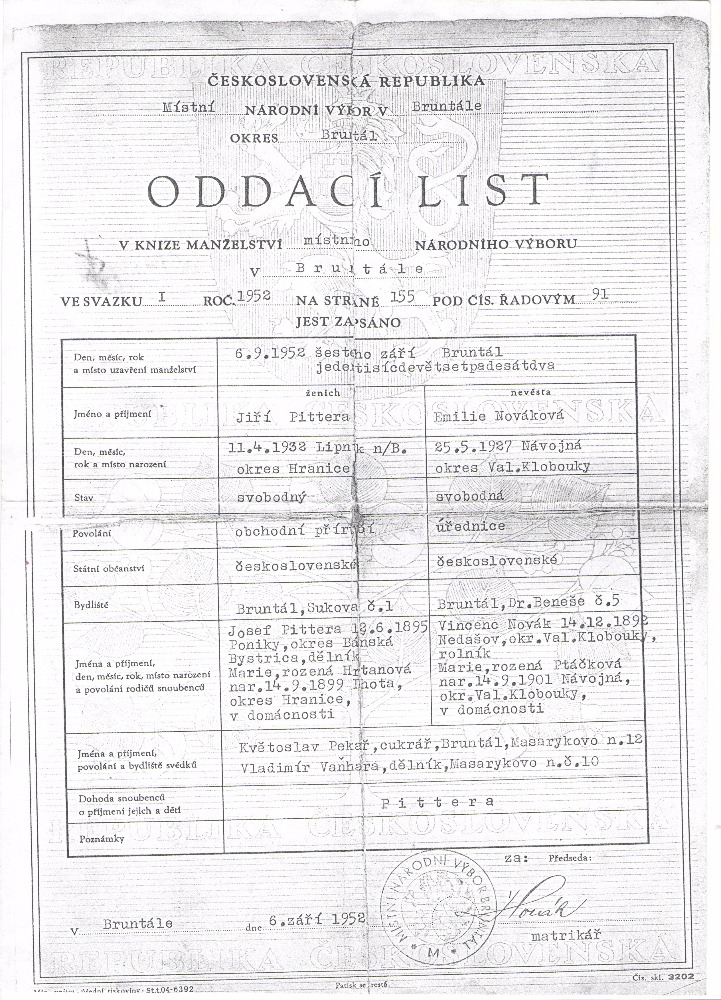 REPUBLIKA ČESKOSLOVENSKÁ
ČESKOSLOVENSKÁ REPUBLIKA
Místní NÁRODNÍ VÝBOR V Bruntále
OKRES Bruntál
ODDACÍ LIST
V KNIZE MANŽELSTVÍ místního NÁRODNÍHO VÝBORU
V Bruntále
VE SVAZKU I ROČ. 1952 NA STRANĚ 155 POD CÍS. ŘADOVÝM 91
JEST ZAPSÁNO
Den, měsíc, rok
a místo uzavření manželství
6.9.1952 šestého září Bruntál
jedentisícdevětsetpadesátdva
ženich
nevěsta
Jméno a příjmení
Jiří Pittera
Emilie Nováková
Den, měsíc,
rok a místo narození
11.4.1932 Lipník n/B.
okres Hranice
25.5.1927 Návojná
okres Val.Klobouky
Stav
svobodný
svobodná
Povolání
obchodní příručí
úřednice
Státní občanství
československé
československé
Bydliště
Bruntál,Sukova č.1
Bruntál,Dr.Beneše č.5
Jména a příjmení,
den, měsíc, rok, místo narození
a povolání rodičů snoubenců
Josef Pittera 18.6.1895
Poniky,okres Bánská
Bystrica,dělník
Marie,rozená Hrtanová
nar.14.9.1899 Lhota,
okres Hranice,
v domácnosti
Vincenc Novák 14.12.1892
Nedašov,okr.Val.Klobouky,
rolník
Marie,rozená Ptáčková
nar.14.9.1901 Návojná,
okr.Val.Klobouky,
v domácnosti
Jména a příjmení,
povolání a bydliště svědků
Květoslav Pekař,cukrář,Bruntál,Masarykovo n.12
Vladimír Vaňhara,dělník,Masarykovo n.č.10
Dohoda snoubenců
o příjmení jejich a dětí
Pittera
Poznámky
REPUBLIKA ČESKOSLOVENSKÁ
MÍSTNÍ NÁRODNÍ VÝBOR BRUNTÁL
M
za: Předseda:
V Bruntále dne 6.září 1952
Novák
matrikář
REPUBLIKA ČESKOSLOVENSKÁ
St.t.04-6392
Čís. skl. 3202